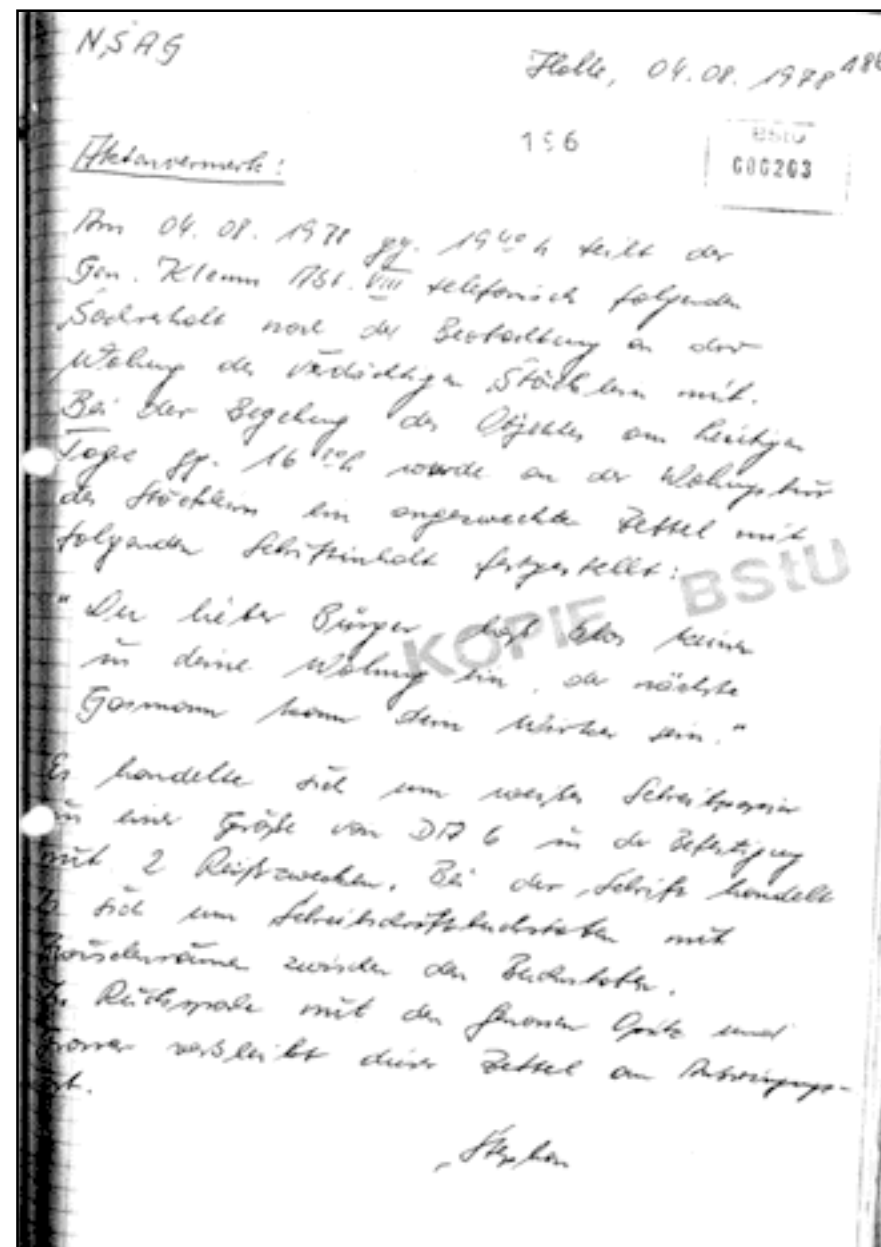 NSAG
Halle, 04.08.1978 186
196
BStU
000203
Aktenvermerk:
Am 04.08.1978 gg. 19⁴⁰ h teilt der
Gen. Klemm Abt. VIII telefonisch folgenden
Sachverhalt nach der Beobachtung an der
Wohnung des verdächtigen Stöcklein mit.
Bei der Begehung des Objektes am heutigen
Tage gg. 16 h wurde an der Wohnungstür
des Stöcklein ein angezweckter Zettel mit
folgenden Schriftinhalt festgestellt:
"Du lieber Bürger laß keinen
in deine Wohnung ein, der nächste
Gasmann kann dein Mörder sein."
Es handelte sich um weißes Schreibpapier
in einer Größe von DIN A 6 in der Befestigung
mit 2 Reißzwecken. Bei der Schrift handelt
es sich um Schreibschriftbuchstaben mit
Zwischenräumen zwischen den Buchstaben.
Rücksprache mit den Genossen Opitz und
verbleibt dieser Zettel am Anbringungs-
ort.
Stephan
KOPIE BStU